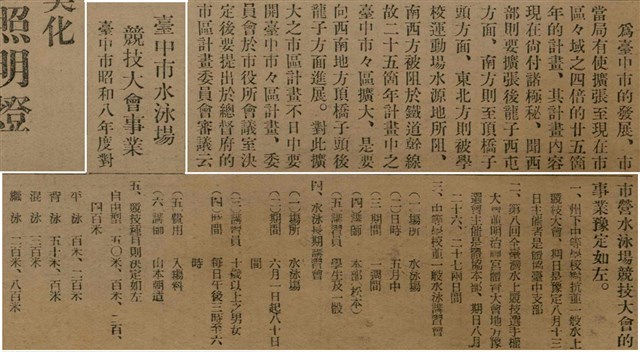 為臺中市的發展、市
當局有使擴張至現在市
區々域之四倍的廿五箇
年的計畫、其計畫內容
現在尚付諸極秘、聞西
部則要擴張後龍子西屯
方面、南方則至頂橋子
頭方面、東北方則被學
校運動場水源地所阻、
南西方被阻於鐵道幹線
故二十五箇年計畫中之
臺中市々區擴大、是要
向西南地方頂橋子頭後
龍子方面進展。對此擴
大之市區計畫不日中要
開臺中市々區計畫、委
員會於市役所會議室決
定後要提出於總督府的
市區計畫委員會審議云
臺中市水泳場
競技大會事業
臺中市昭和八年度對
市營水泳場競技大會的
事業豫定如左。
一、州下中等學校對抗並一般水上
競技大會、期日是豫定八月十三
日主催者是體協臺中支部
二、第八回全臺灣水上競技選手權
大會兼明治神宮大會地方豫
選會主催是體協本部、期日八月
二十六、二十七兩日間
三、中等學校並一般水泳講習會
(一)場所 水泳場
(二)日時 五月中
(三)期間 一週間
(四)講師 本部
(五)講習員 學生及一般
四、水泳長期講習會
(一)場所 水泳場
(二)期間 六月一日起八十日
間
(三)講習員 十歲以上之男女
(四)時間 每日午後三時至六
時
(五)費用 入場料
(六)講師 山本朝造
五、競技種目則決定如左
自由型 五〇米、百米、二百、
四百米
平泳 百米、二百米
背泳 五十米、百米
混泳 三百米
繼泳 二百米、八百米
化
照明燈